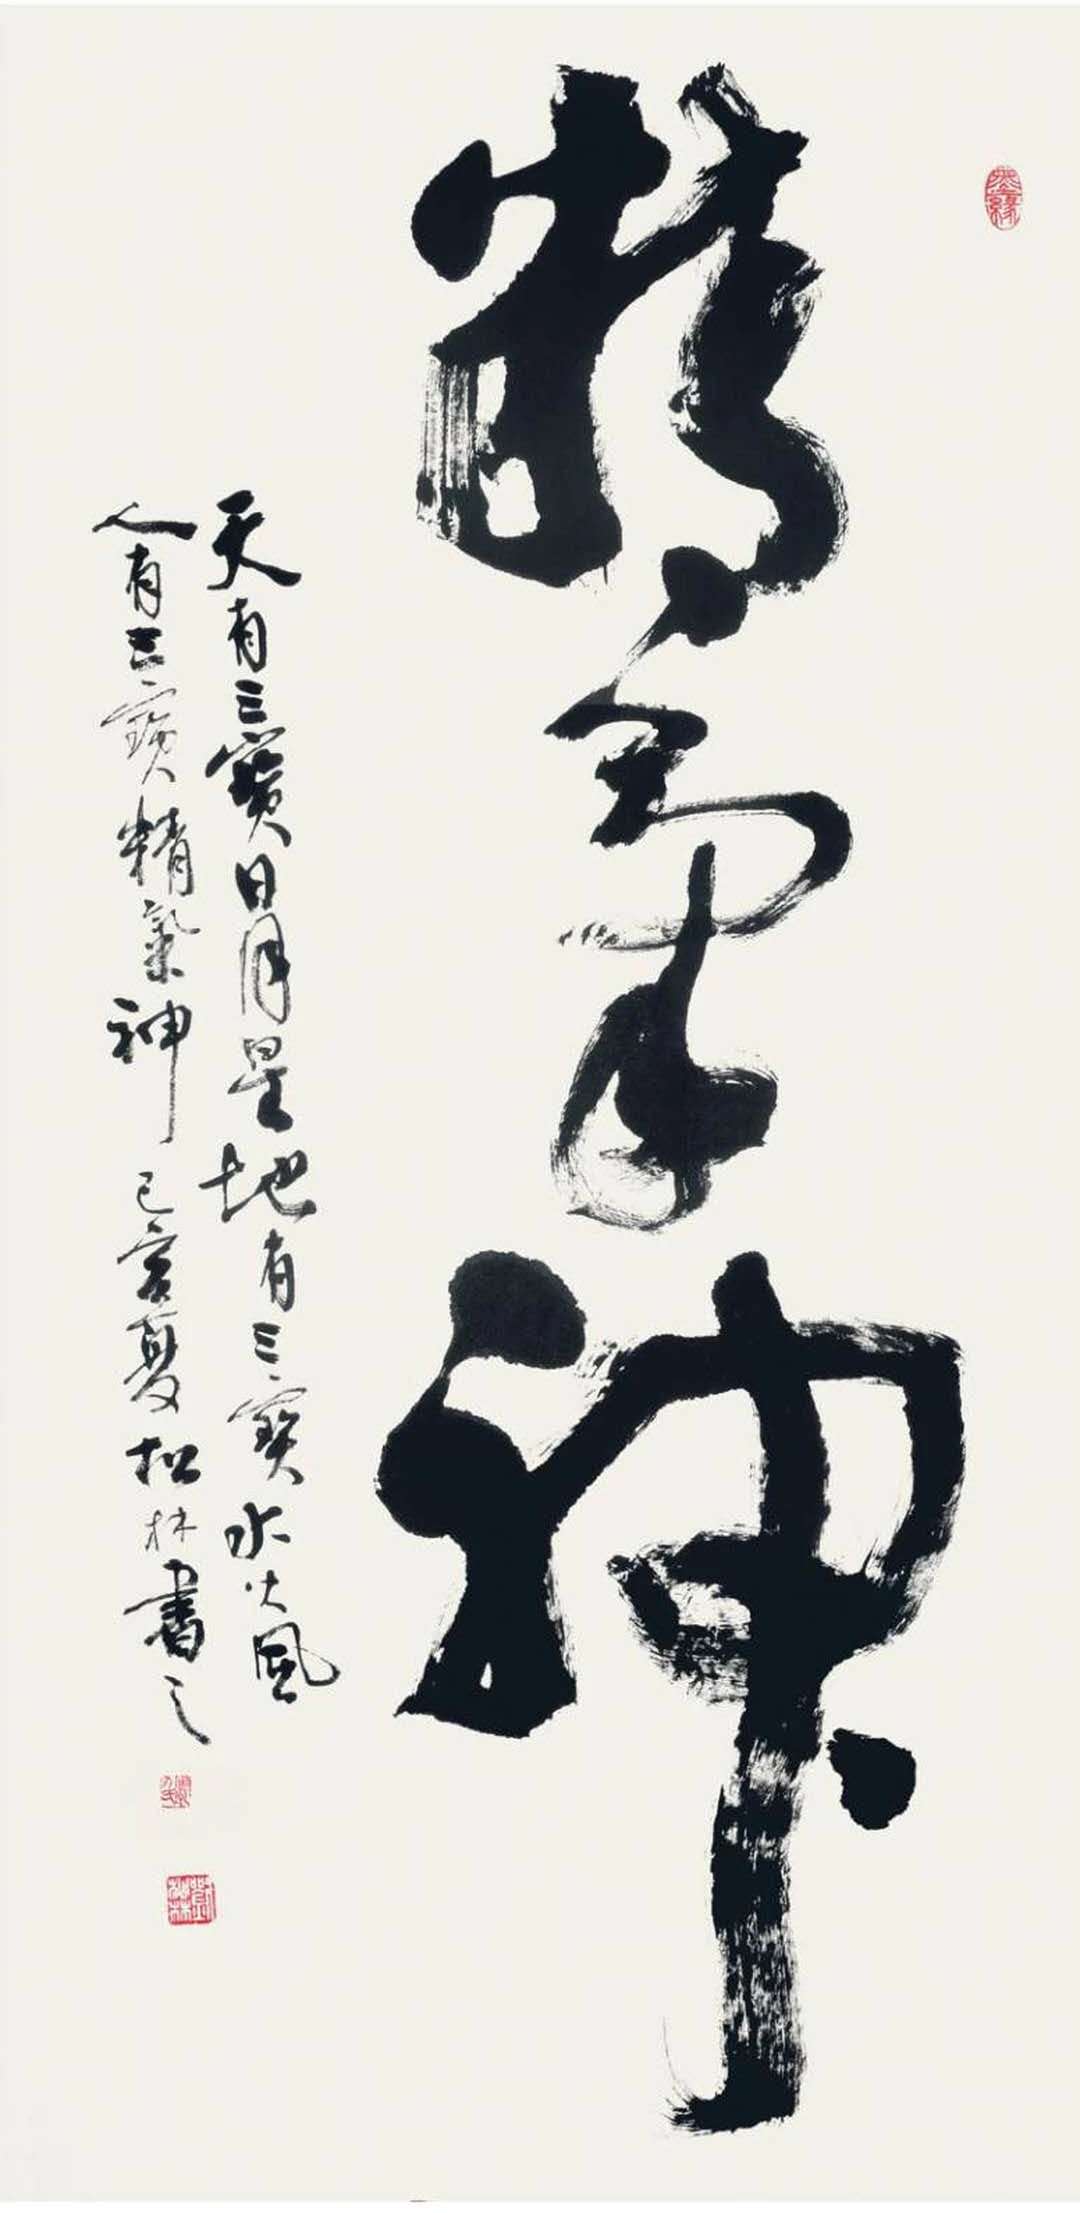 精氣神
天有三寶日月星地有三寶水火風
人有三寶精氣神 己亥夏松林書之